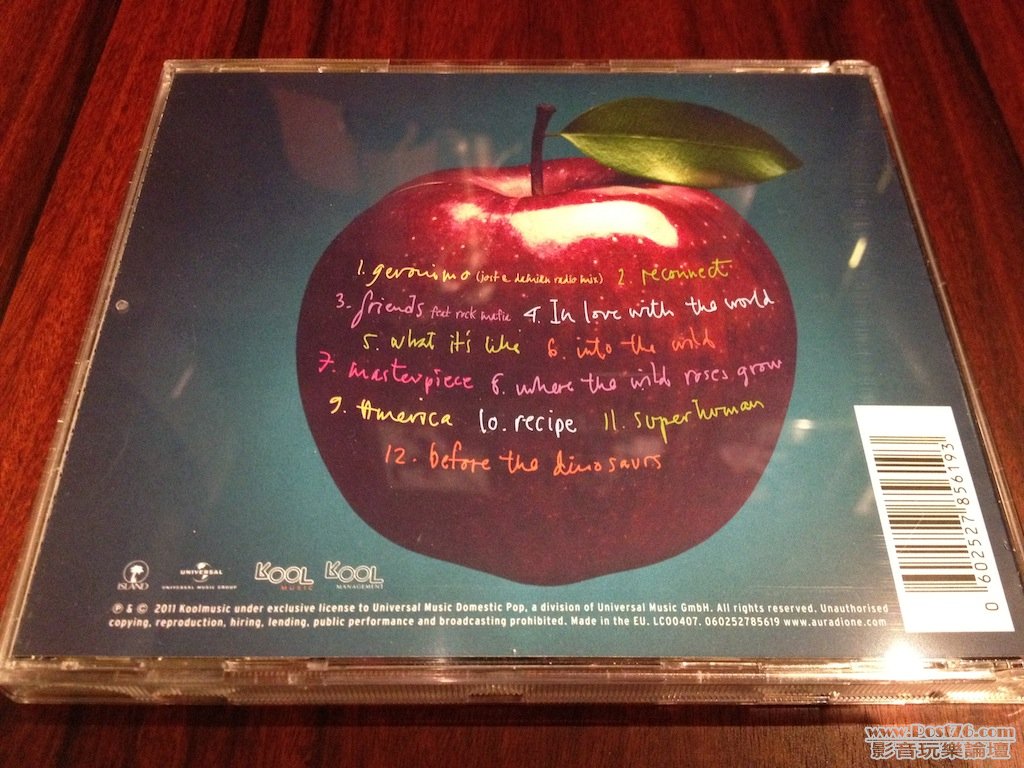 1. geronimo (jost & damien radio mix) 2. reconnect
3. friends feat rock mafia 4. In love with the world
5. what it's like 6. into the wild
7. masterpiece 8. where the wild roses grow
9. America 10. recipe 11. superhuman
12. before the dinosaurs
ISLAND
UNIVERSAL
UNIVERSAL MUSIC GROUP
KOOL MUSIC
KOOL MANAGEMENT
℗ & © 2011 Koolmusic under exclusive license to Universal Music Domestic Pop, a division of Universal Music GmbH. All rights reserved. Unauthorised
copying, reproduction, hiring, lending, public performance and broadcasting prohibited. Made in the EU. LC00407. 060252785619 www.auradione.com
0 602527 856193
www.Post76.com
影音玩樂論壇